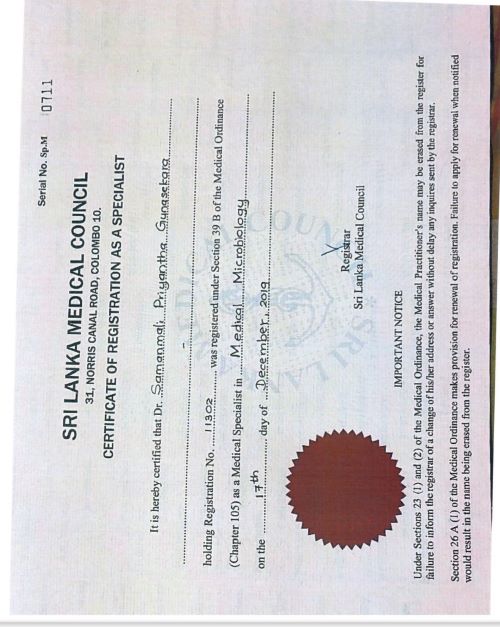 Serial No. Sp.M 0711
SRI LANKA MEDICAL COUNCIL
31, NORRIS CANAL ROAD, COLOMBO 10.
CERTIFICATE OF REGISTRATION AS A SPECIALIST
It is hereby certified that Dr. Samanmali Priyantha Gunasekara
holding Registration No. 11302 was registered under Section 39 B of the Medical Ordinance
(Chapter 105) as a Medical Specialist in Medical Microbiology
on the 17th day of December, 2019
Registrar
Sri Lanka Medical Council
IMPORTANT NOTICE
Under Sections 23 (1) and (2) of the Medical Ordinance, the Medical Practitioner's name may be erased from the register for
failure to inform the registrar of a change of his/her address or answer without delay any inquires sent by the registrar.
Section 26 A (1) of the Medical Ordinance makes provision for renewal of registration. Failure to apply for renewal when notified
would result in the name being erased from the register.